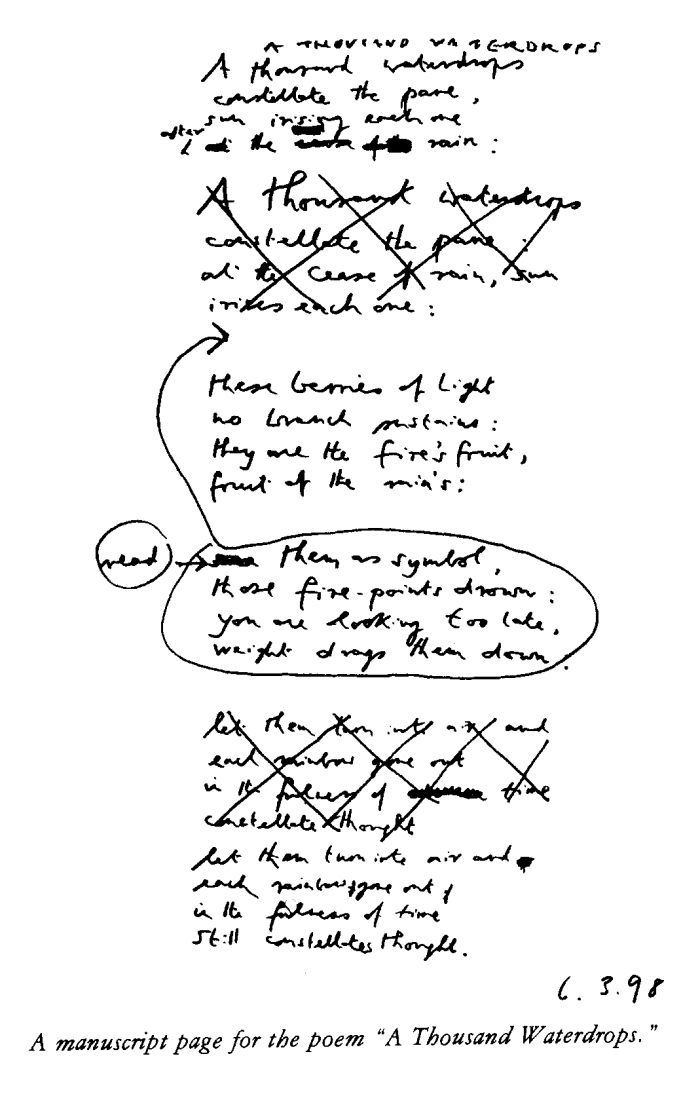 A THOUSAND WATERDROPS
A thousand waterdrops
constellate the pane,
sun irising each one
after
at the cease of the rain:
A thousand waterdrops
constellate the pane:
at the cease of rain, sun
irises each one:
these berries of light
no branch sustains:
they are the fire's fruit,
fruit of the rain's:
read
them as symbol,
those fire-points drown:
you are looking too late,
weight drags them down.
let them turn into air and
each rainbow gone out
in the fulness of time
constellate thought
let them turn into air and
each rainbow, gone out,
in the fulness of time
still constellates thought.
6.3.98
A manuscript page for the poem "A Thousand Waterdrops."